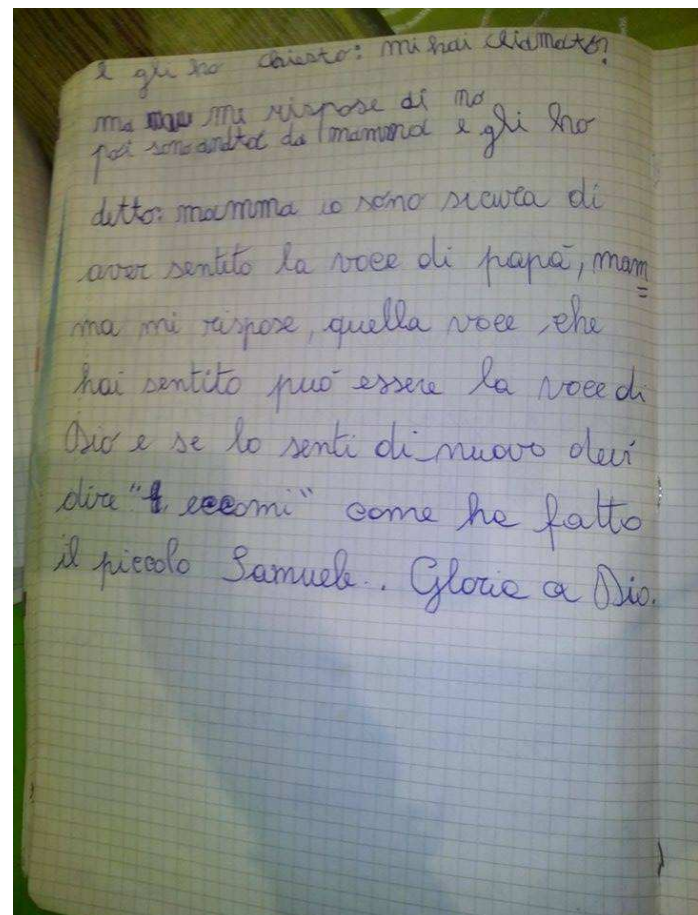 e gli ho chiesto: mi hai chiamato?
ma mi rispose di no
poi sono andata da mamma e gli ho
detto: mamma io sono sicura di
aver sentito la voce di papà, mam
ma mi rispose, quella voce che
hai sentito può essere la voce di
Dio e se lo senti di nuovo devi
dire " eccomi" come ha fatto
il piccolo Samuele.. Gloria a Dio.